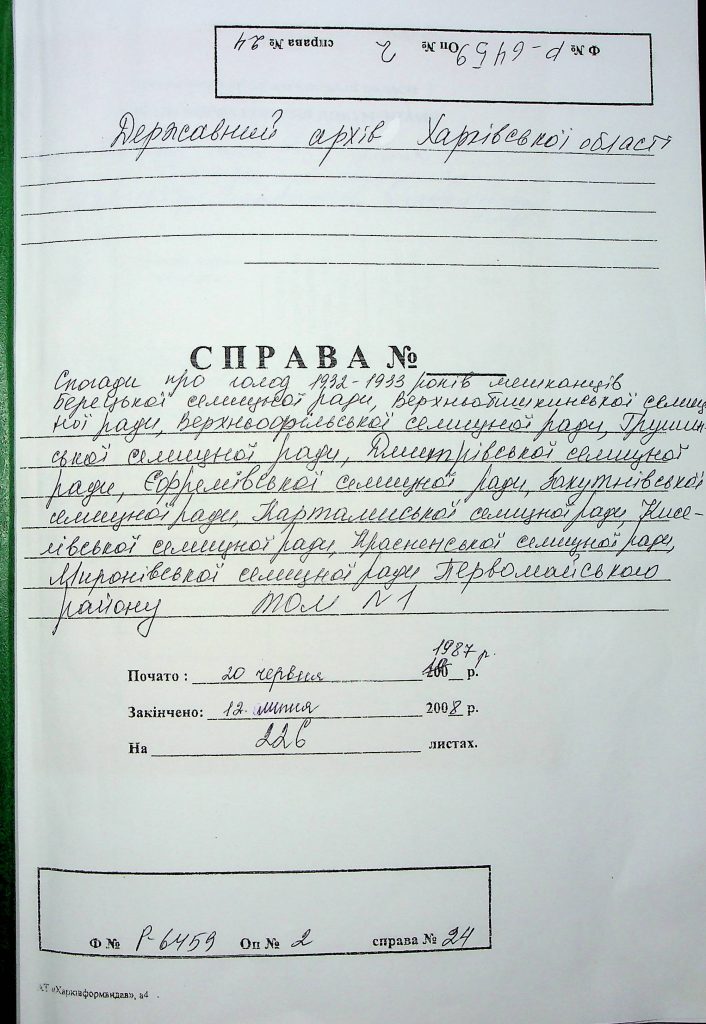 Ф № Р-6459 Оп № 2 справа № 24
Державний архів Харківської області
СПРАВА №
Спогади про голод 1932-1933 років мешканців
Берецької селищної ради, Верхньобишкинської селищ-
ної ради, Верхньоорільської селищної ради, Грушин-
ської селищної ради, Дмитрівської селищної
ради, Єфремівської селищної ради, Закутнівської
селищної ради, Картамиської селищної ради, Кисе-
лівської селищної ради, Красненської селищної ради,
Миронівської селищної ради Первомайського
району ТОМ №1
1987 р.
Почато : 20 червня 200 р.
Закінчено: 12 липня 2008 р.
На 226 листах.
Ф № Р-6459 Оп № 2 справа № 24
АТ «Харківформвидав», з4